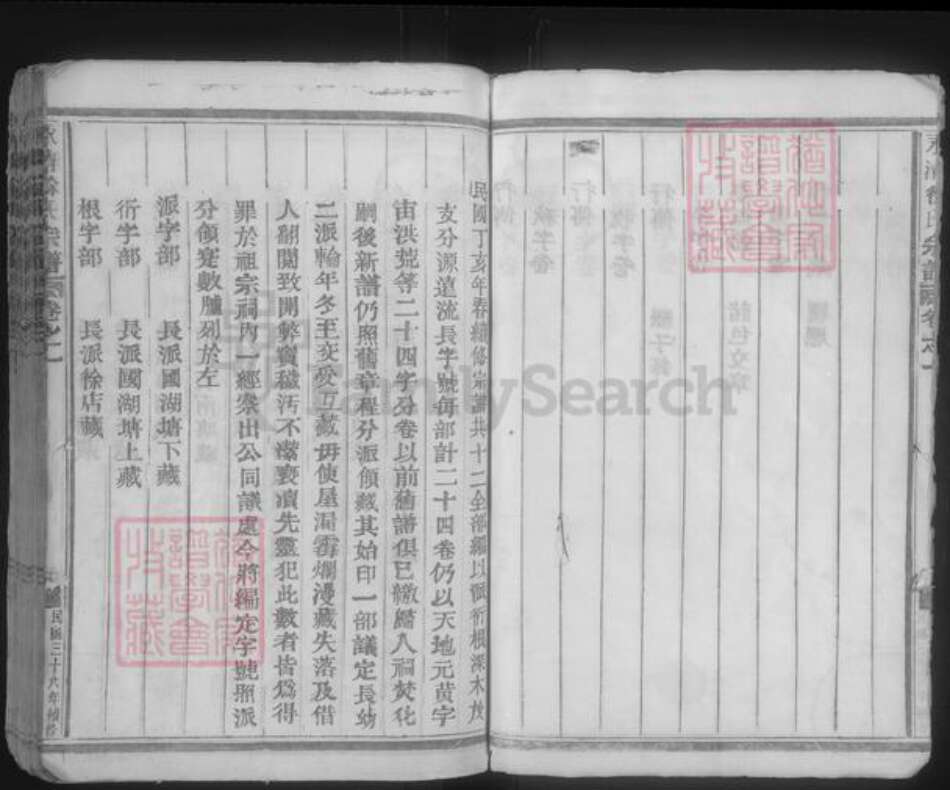 民國丁亥年春續修宗譜共十二全部編以派衍根深木茂
支分源遠流長字號每部計二十四卷仍以天地元黄字
宙洪荒等二十四字分卷以前舊譜俱已繳歸入祠焚化
嗣後新譜仍照舊章程分派領藏其始印一部議定長幼
二派輪年冬至交受互藏毋使屋漏霉爛漫藏失落及借
人翻閱致開弊竇穢汚不潔褻瀆先靈犯此數者皆爲得
罪於祖宗祠内一經察出公同議處今將編定字號照派
分領穿數臚列於左
派字部 長派國湖塘下藏
衍字部 長派國湖塘上藏
根字部 長派徐店藏
宗譜 卷之一
民國三十六年續修
FamilySearch